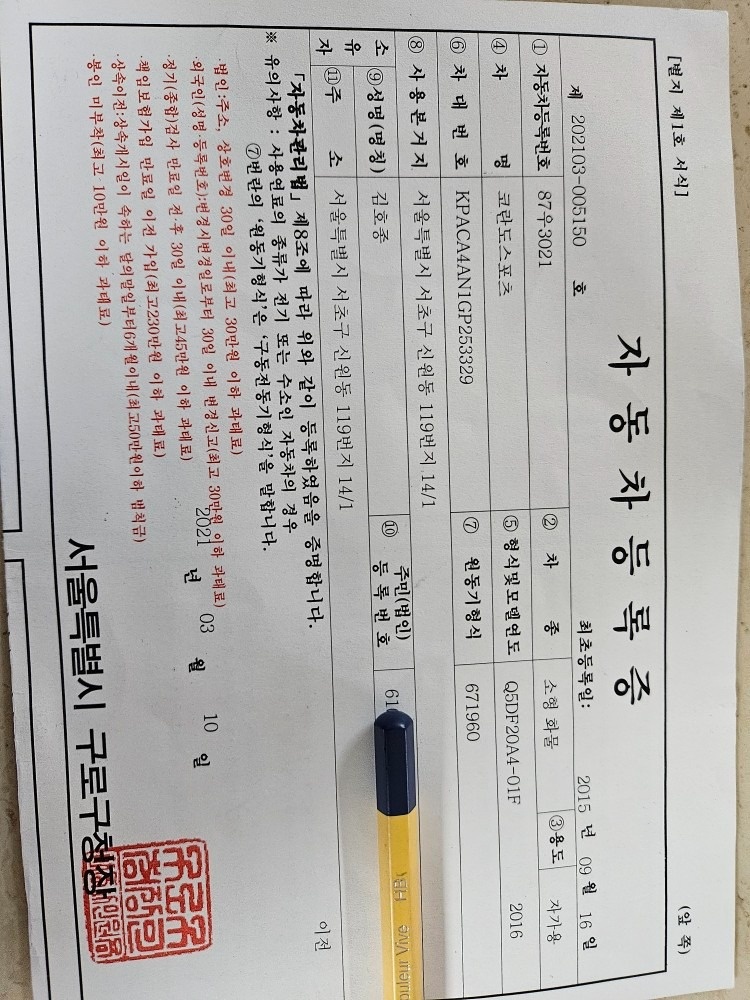 [별지 제1호 서식]
(앞 쪽)
자 동 차 등 록 증
제 202103-005150 호
최초등록일: 2015 년 09 월 16 일
① 자동차등록번호 87우3021 ② 차 종 소형 화물 ③용도 자가용
④ 차 명 코란도스포츠 ⑤ 형식및모델연도 Q5DF20A4-01F 2016
⑥ 차 대 번 호 KPACA4AN1GP253329 ⑦ 원동기형식 671960
⑧ 사 용 본 거 지 서울특별시 서초구 신원동 119번지 14/1
소 유 자 ⑨성명(명칭) 김호종 ⑩ 주민(법인) 등 록 번 호 61
⑪주 소 서울특별시 서초구 신원동 119번지 14/1
이전
「자동차관리법」 제8조에 따라 위와 같이 등록하였음을 증명합니다.
※ 유의사항 : 사용연료의 종류가 전기 또는 수소인 자동차의 경우
⑦번란의 '원동기형식'은 '구동전동기형식'을 말합니다.
·법인:주소, 상호변경 30일 이내(최고 30만원 이하 과태료)
·외국인(성명·등록번호):변경시변경일로부터 30일 이내 변경신고(최고 30만원 이하 과태료)
·정기(종합)검사 만료일 전·후 30일 이내(최고45만원 이하 과태료)
·책임보험가입 만료일 이전 가입(최고230만원 이하 과태료)
·상속이전:상속개시일이 속하는 달의말일부터6개월이내(최고50만원이하 범칙금)
·봉인 미부착(최고 10만원 이하 과태료)
2021 년 03 월 10 일
서울특별시 구로구청장
HB